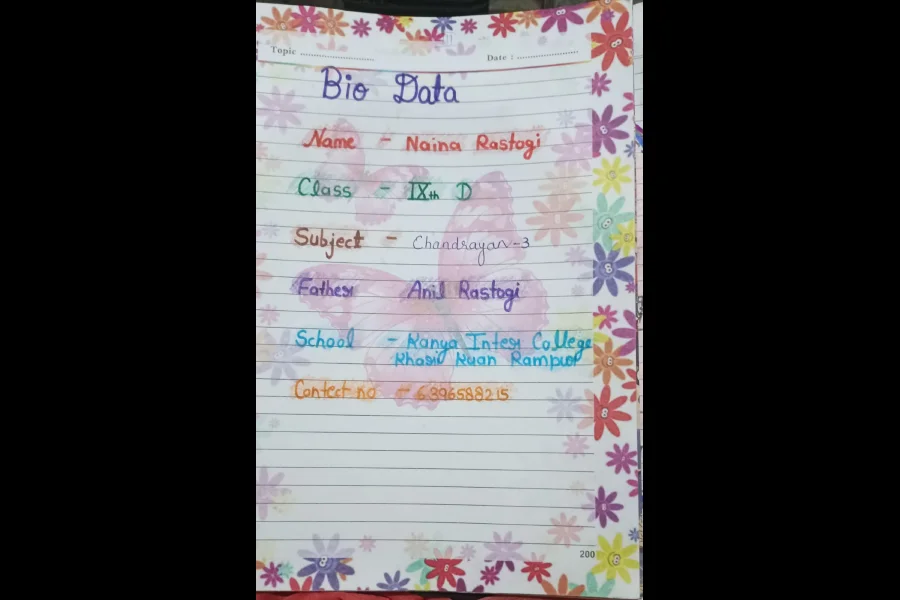 Topic ............................
Date : ......................
Bio Data
Name - Naina Rastogi
Class - IXth D
Subject - Chandrayan-3
Father Anil Rastogi
School - Kanya Inter College
Khari Kuan Rampur
Contect no - 6396588215
200